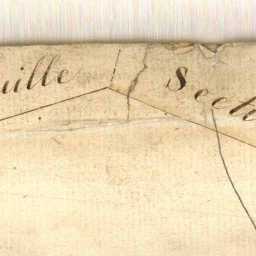 uille Secti